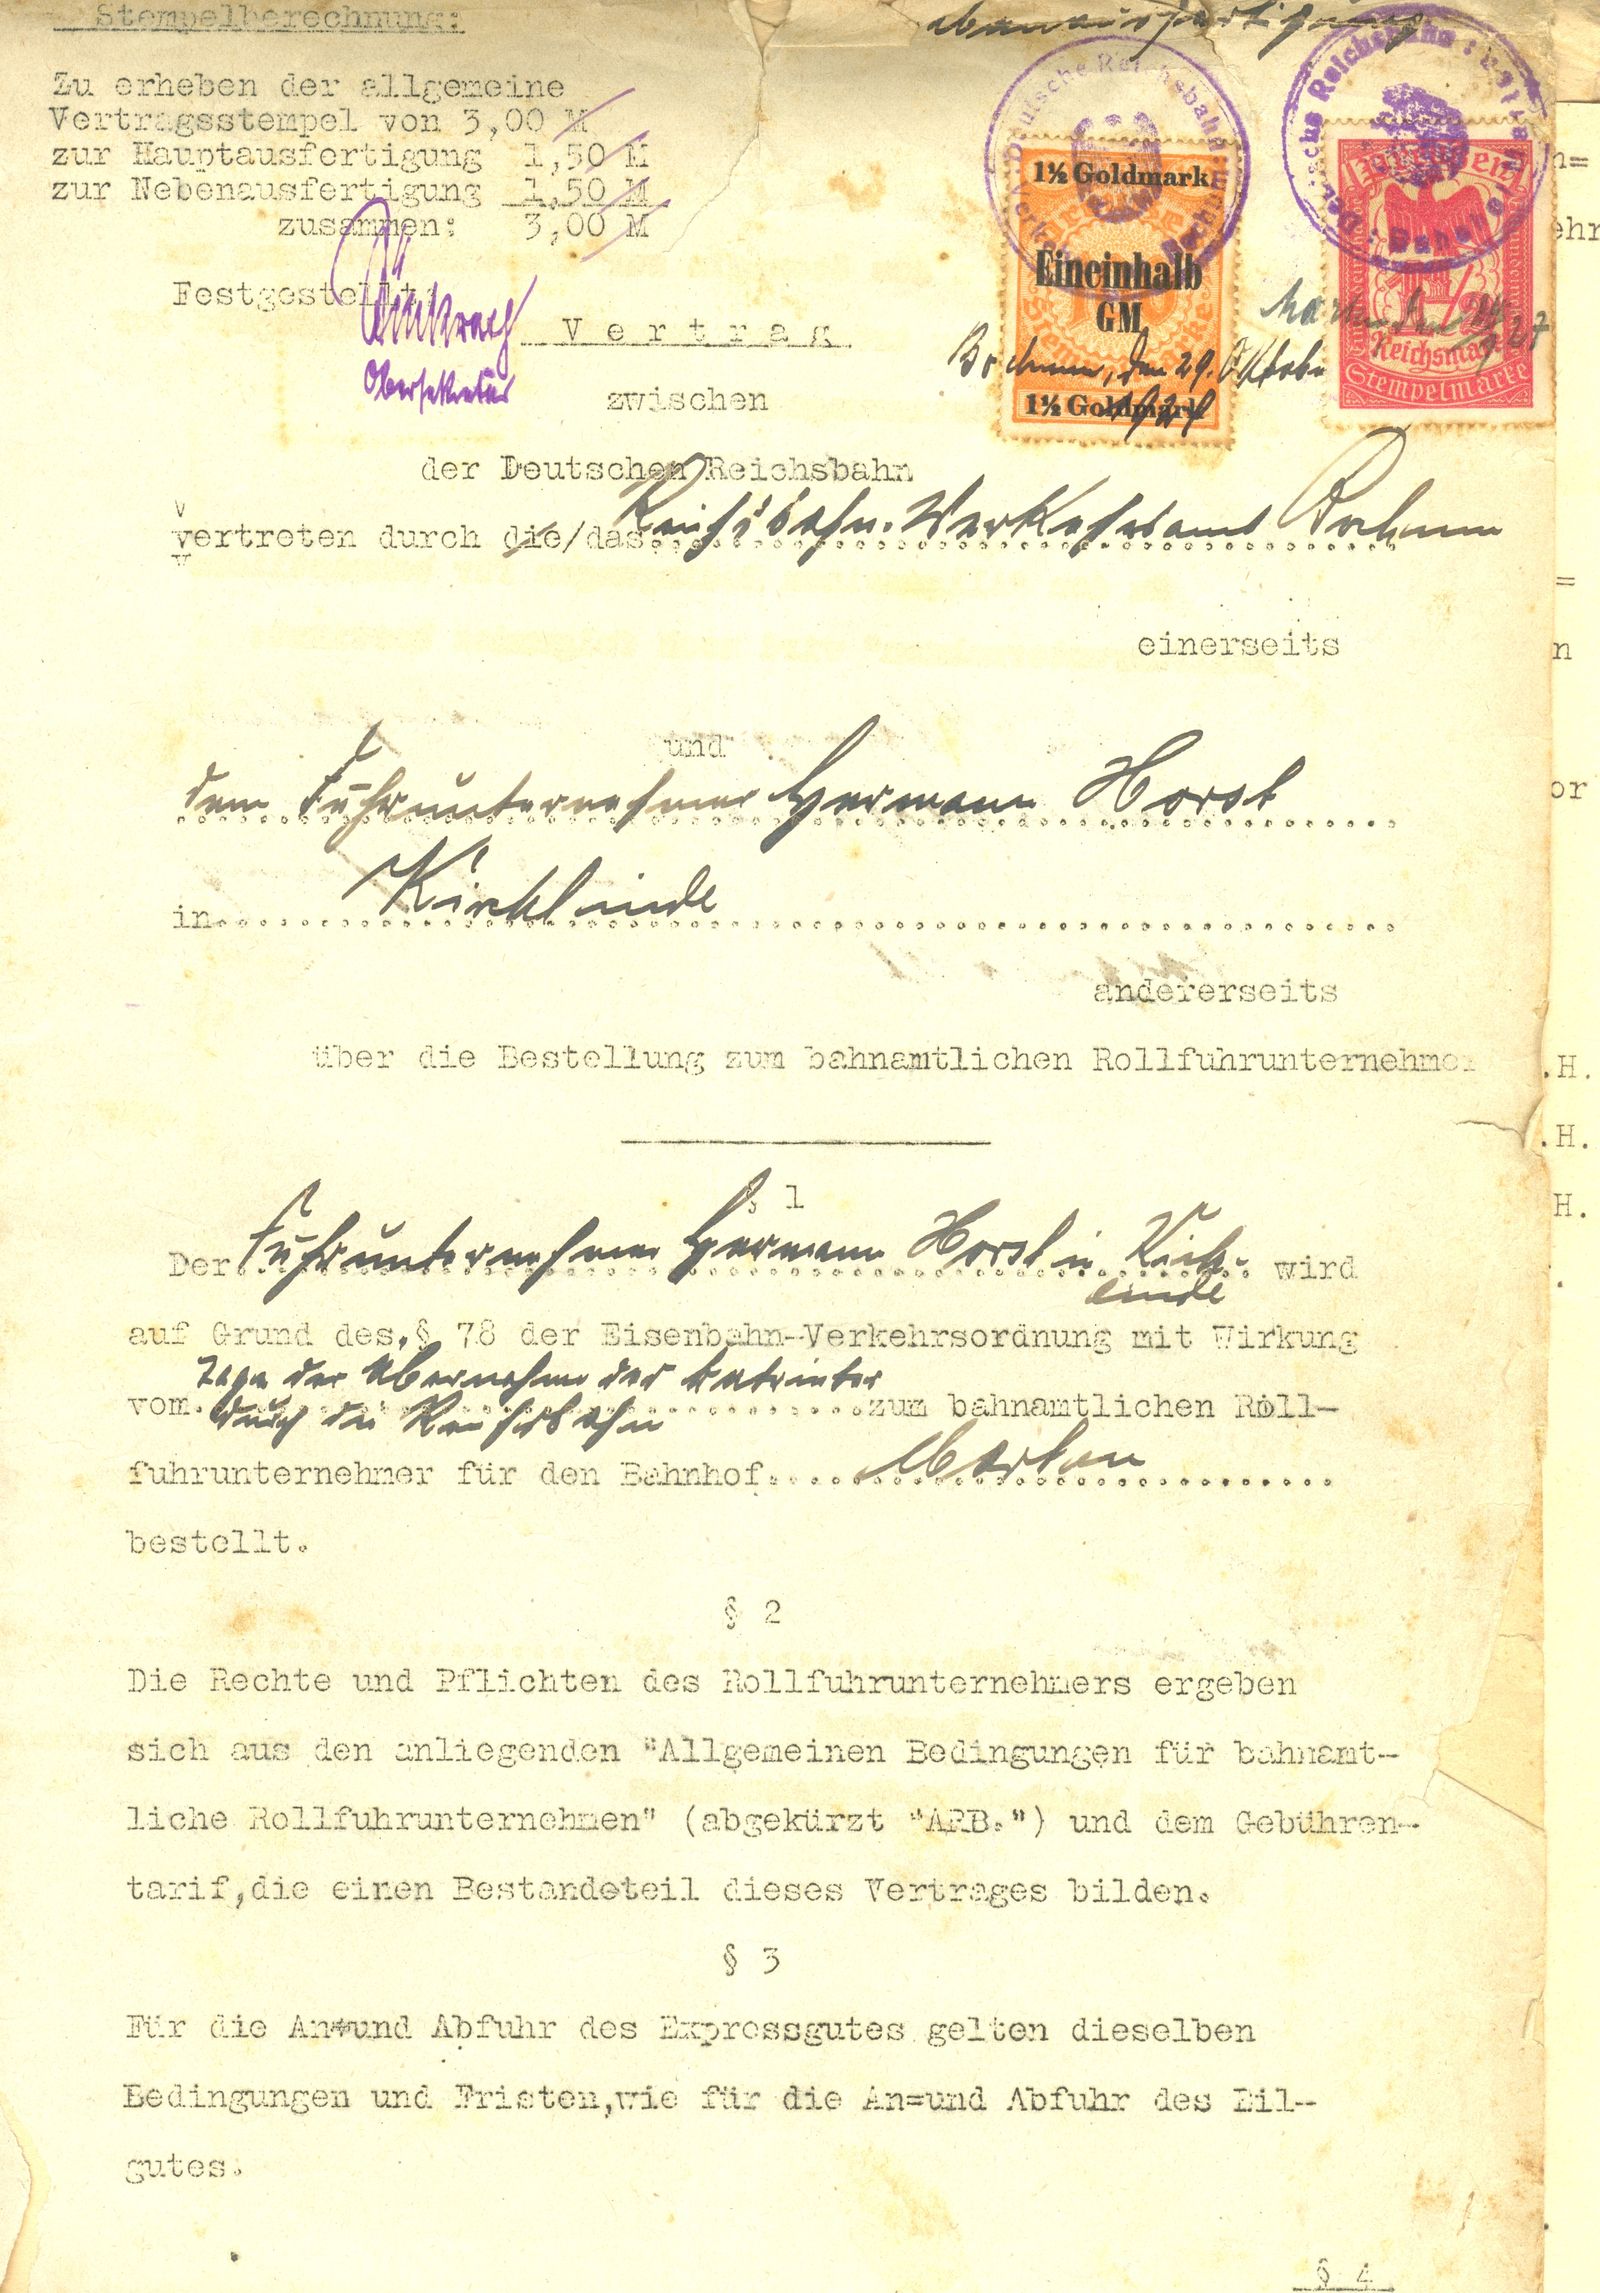 Stempelberechnung:
Nebenausfertigung
Zu erheben der allgemeine
Vertragsstempel von 3,00 M
zur Hauptausfertigung 1,50 M
zur Nebenausfertigung 1,50 M
zusammen: 3,00 M
Festgestellt:
Obersekretär
Deutsche Reichsbahn
Bochum
1½ Goldmark
Eineinhalb
GM
1½ Goldmark
Bochum, den 29. Oktober
1924
Deutsche Reichsbahn
Reichsmark
Stempelmarke
Marten, den
27
Vertrag
zwischen
der Deutschen Reichsbahn
vertreten durch die/das Reichsbahn-Verkehrsamt Bochum
einerseits
und
dem Fuhrunternehmer Hermann Horst
in Kirchlinde
andererseits
über die Bestellung zum bahnamtlichen Rollfuhrunternehmer
§ 1
Der Fuhrunternehmer Hermann Horst in Kirch-
linde wird
auf Grund des § 78 der Eisenbahn-Verkehrsordnung mit Wirkung
vom Tage der Übernahme der
durch die Reichsbahn zum bahnamtlichen Roll-
fuhrunternehmer für den Bahnhof Marten
bestellt.
§ 2
Die Rechte und Pflichten des Rollfuhrunternehmers ergeben
sich aus den anliegenden "Allgemeinen Bedingungen für bahnamt-
liche Rollfuhrunternehmen" (abgekürzt "ARB.") und dem Gebühren-
tarif,die einen Bestandteil dieses Vertrages bilden.
§ 3
Für die An=und Abfuhr des Expressgutes gelten dieselben
Bedingungen und Fristen,wie für die An=und Abfuhr des Eil-
gutes.
§ 4